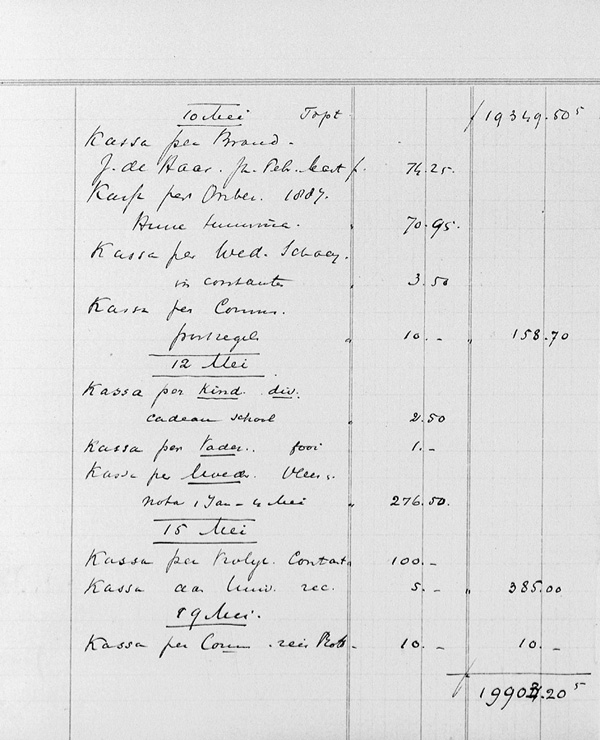 10 Mei Tspt f 19349.50⁵
Kassa per Brand.
J. de Haas. Feb. Maart f. 74.25.
Kass per Onber. 1887.
" 70.95.
Kassa per Wed.
in contanten " 3.50
Kassa per Comm.
postzegels " 10.- " 158.70
12 Mei
Kassa per Kind. div.
cadeau school " 2.50
Kassa per Vader. fooi " 1.-
Kassa per Moeder. Vlees.
nota 1 Jan - 4 Mei " 276.50.
15 Mei
Kassa per Contant 100.-
Kassa aan Univ. rec. 5.- " 385.00
19 Mei.
Kassa per Comm. reis 10.- 10.-
f 19903.20⁵